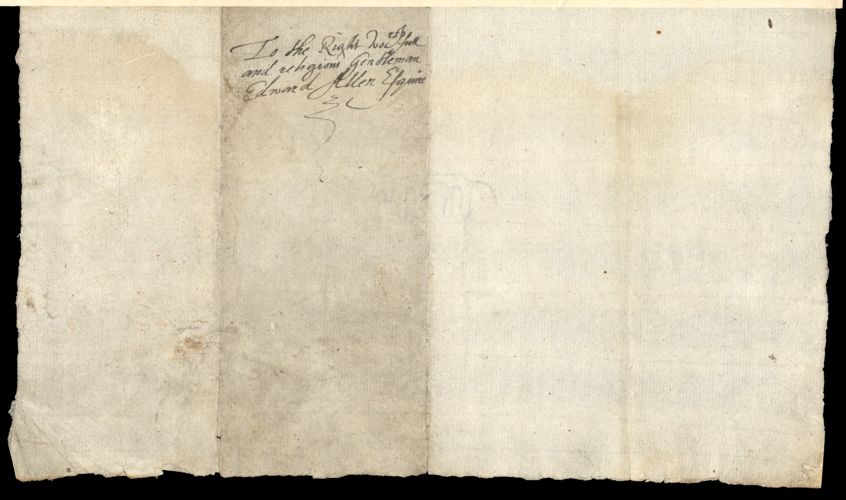 To the Right Wor:spfull
and religious Gentleman
Edward Allen Esquire